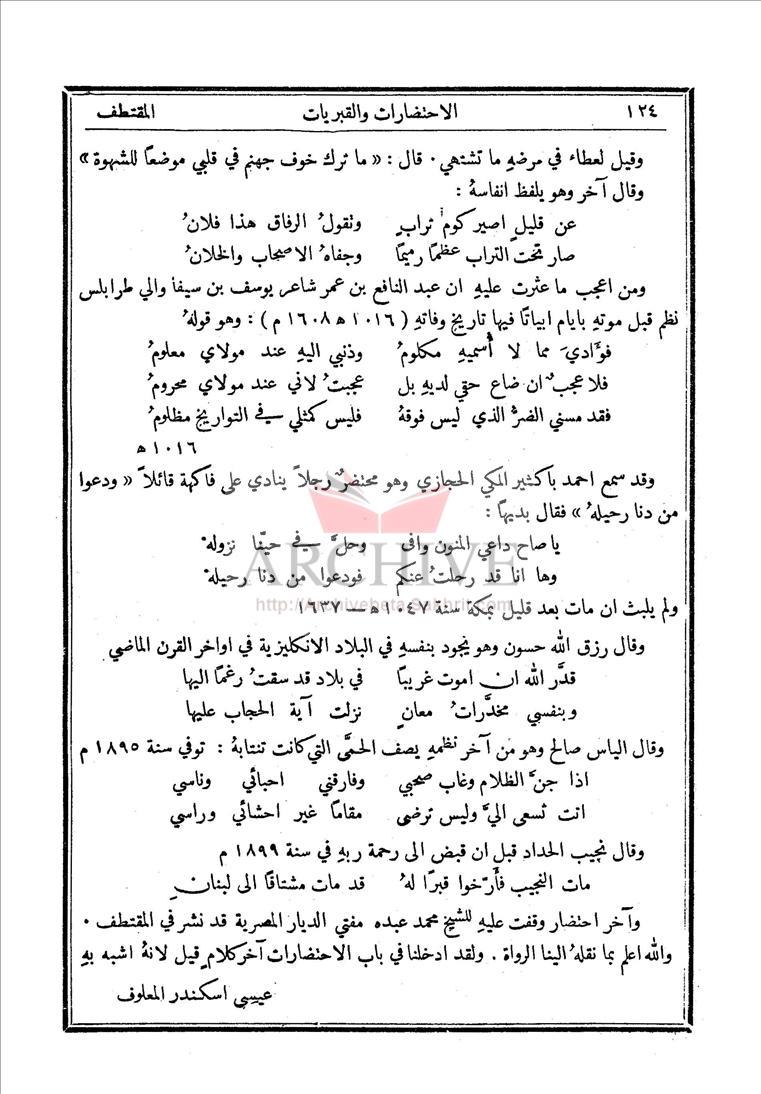 ١٢٤ الاحتضارات والقبريات المقتطف
وقيل لعطاء في مرضهِ ما تشتهي. قال : « ما ترك خوف جهنم في قلبي موضعاً للشهوة »
وقال آخر وهو يلفظ انفاسهُ :
عن قليلٍ اصير كومَ ترابٍ وتقولُ الرفاق هذا فلانُ
صار تحت التراب عظمًا رميمًا وجفاهُ الاصحاب والخلانُ
ومن اعجب ما عثرت عليهِ ان عبد النافع بن عمر شاعر يوسف بن سيفا والي طرابلس
نظم قبل موتهِ بايام ابياتًا فيها تاريخ وفاتهِ ( ١٠١٦ ه ١٦٠٨ م ) : وهو قولهُ
فوٴاديَ مما لا أسميهِ مكلومُ وذنبي اليهِ عند مولاي معلومُ
فلا عجبٌ ان ضاع حقي لديهِ بل عجبتُ لاني عند مولاي محرومُ
فقد مسني الضرُّ الذي ليس فوقهُ فليس كمثلي في التواريخ مظلومُ
١٠١٦ ه
وقد سمع احمد باكثير المكي الحجازي وهو محتضرٌ رجلاً ينادي على فاكهة قائلاً « ودعوا
من دنا رحيلهُ » فقال بديهاً :
ياصاح داعي المنون وافى وحلَّ في حيّنا نزولهْ
وها انا قد رحلتُ عنكم فودعوا من دنا رحيلهْ
ARCHIVE
http://Archivebeta.Sakhrit.com
ولم يلبث ان مات بعد قليل بمكة سنة ١٠٤٧ ه — ١٦٣٧
وقال رزق الله حسون وهو يجود بنفسهِ في البلاد الانكليزية في اواخر القرن الماضي
قدَّر الله ان اموت غريبًا في بلاد قد سقتُ رغمًا اليها
وبنفسي مخدَّراتُ معانٍ نزلت آية الحجاب عليها
وقال الياس صالح وهو من آخر نظمهِ يصف الحمَّى التي كانت تنتابهُ : توفي سنة ١٨٩٥ م
اذا جنَّ الظلام وغاب صحبي وفارقني احبائي وناسي
اتت تسعى اليَّ وليس ترضى مقامًا غير احشائي وراسي
وقال نجيب الحداد قبل ان قبض الى رحمة ربهِ في سنة ١٨٩٩ م
مات النجيب فأَرّخوا قبرًا لهُ قد مات مشتاقًا الى لبنانِ
وآخر احتضار وقفت عليهِ للشيخ محمد عبده مفتي الديار المصرية قد نشر في المقتطف.
والله اعلم بما نقلهُ الينا الرواة . ولقد ادخلنا في باب الاحتضارات آخر كلامٍ قيل لانهُ اشبه بهِ
عيسى اسكندر المعلوف